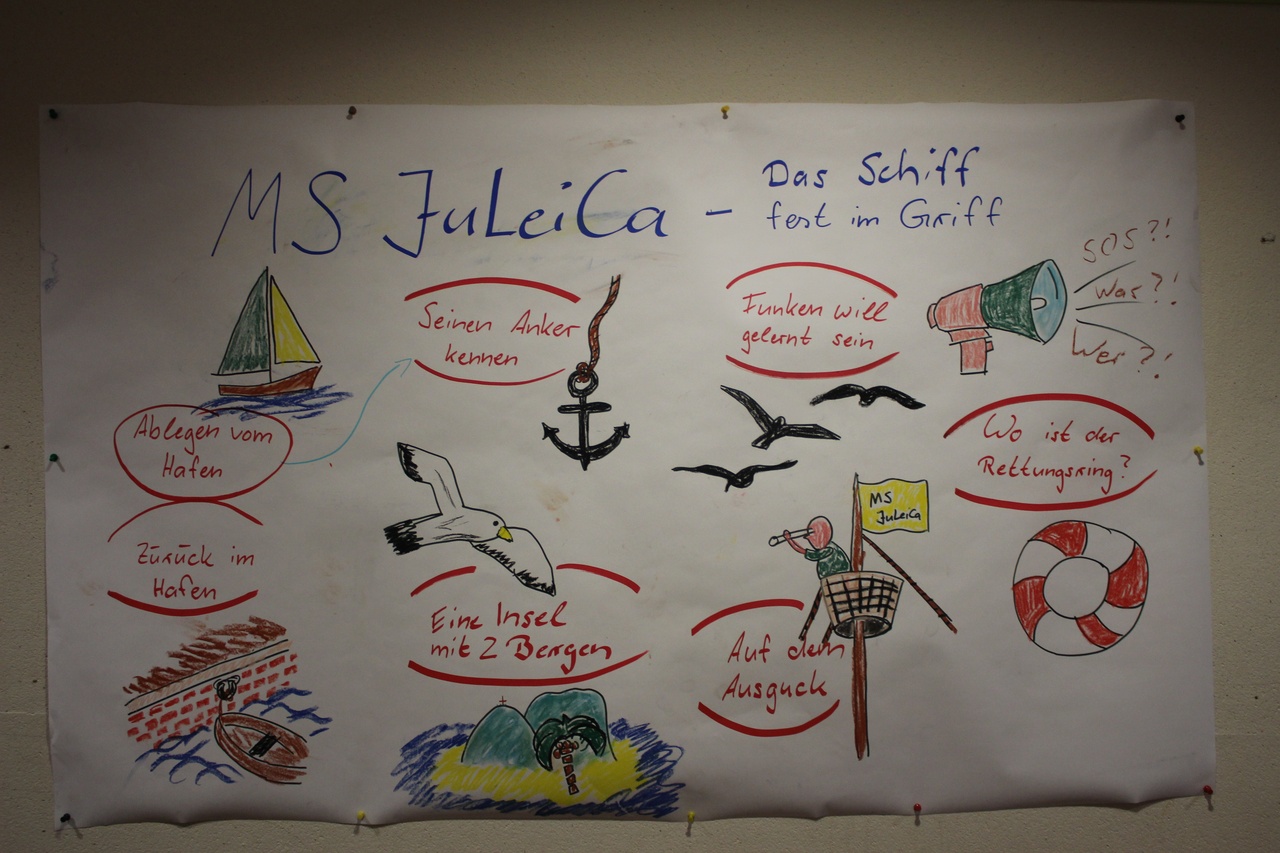 MS JuLeiCa - Das Schiff
fest im Griff
Ablegen vom
Hafen
Seinen Anker
kennen
Funken will
gelernt sein
SOS?!
Was?!
Wer?!
Wo ist der
Rettungsring?
MS
JuLeiCa
Auf dem
Ausguck
Eine Insel
mit 2 Bergen
Zurück im
Hafen